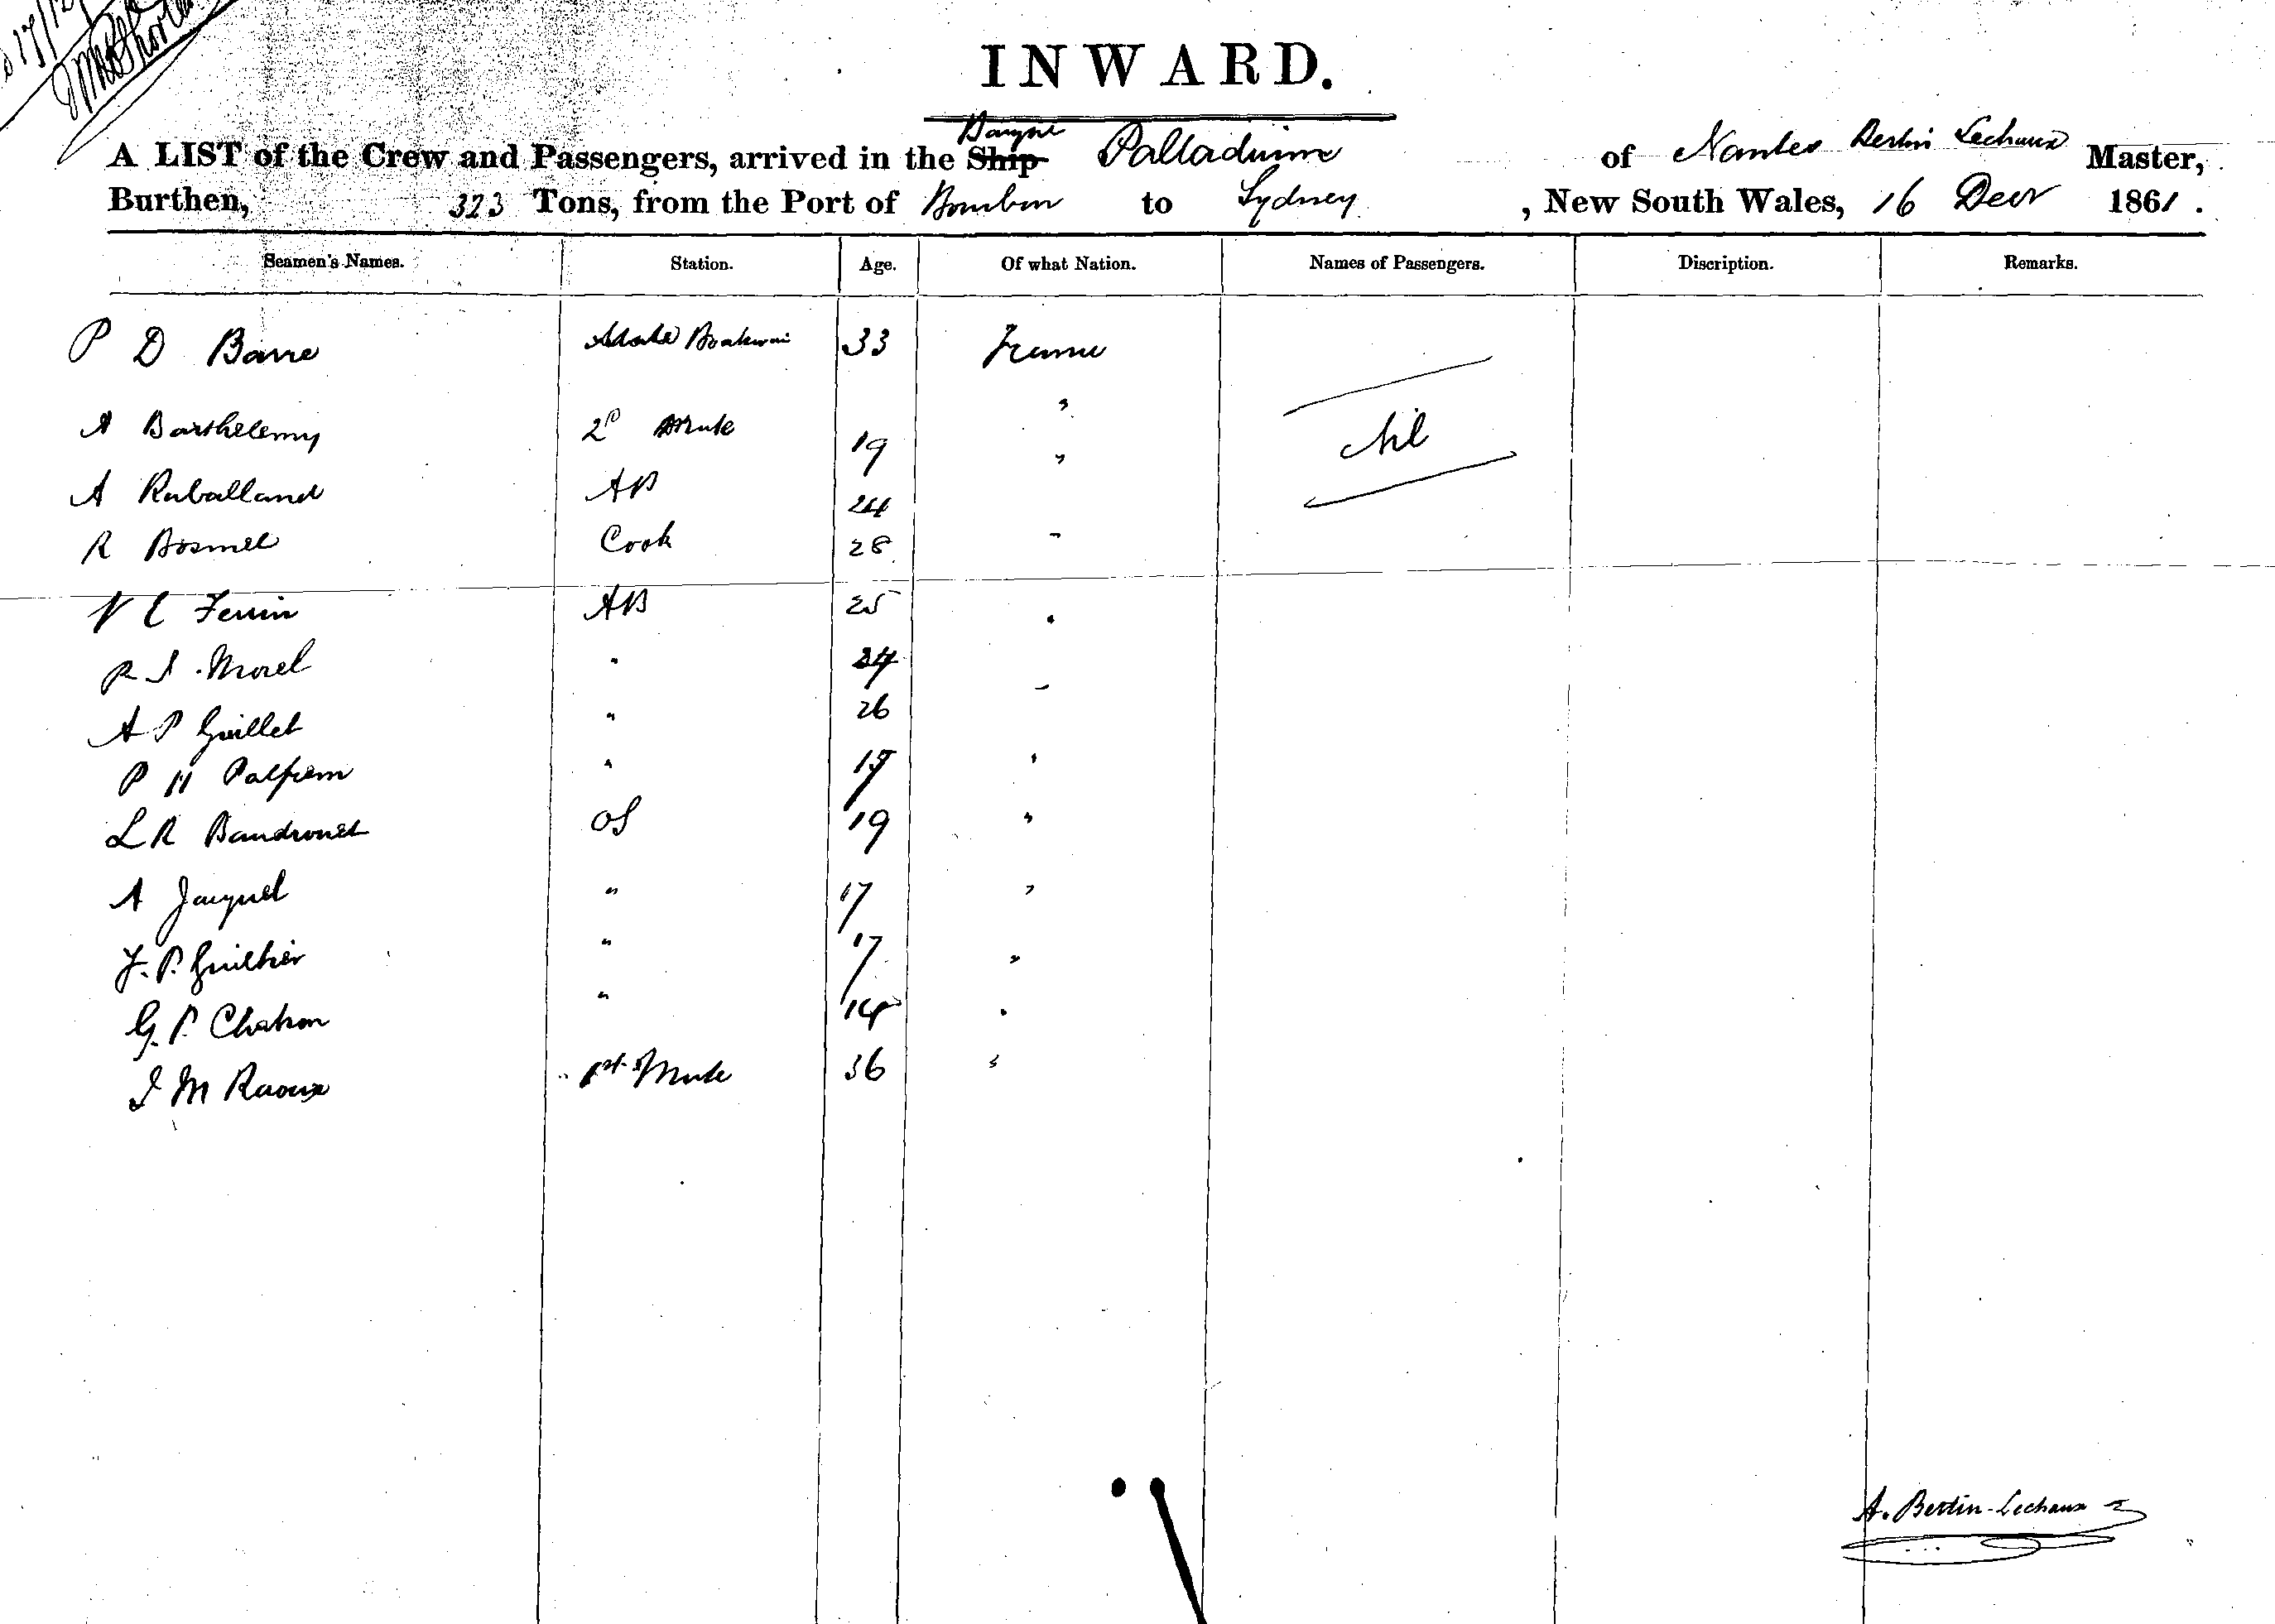 INWARD.
Barque
A LIST of the Crew and Passengers, arrived in the Ship Palladium of Nantes Bertin Lechaux Master,
Burthen, 323 Tons, from the Port of Bourbon to Sydney, New South Wales, 16 Decr 1861.
Seamen's Names. Station. Age. Of what Nation. Names of Passengers. Discription. Remarks.
P D Barre 33 France
A Barthelemy 2d Mate 19 " Nil
A Raballand AB 24 "
R Bosmel Cook 28 "
V C Ferrin AB 25 "
R J Morel " 24 "
A P Guillet " 26 "
P H " 19 "
L R OS 19 "
A Jacquel " 17 "
J. P. " 17 "
G. P. Chatron " "
J M Raoux 1st Mate 36 "
A. Bertin-Lechaux